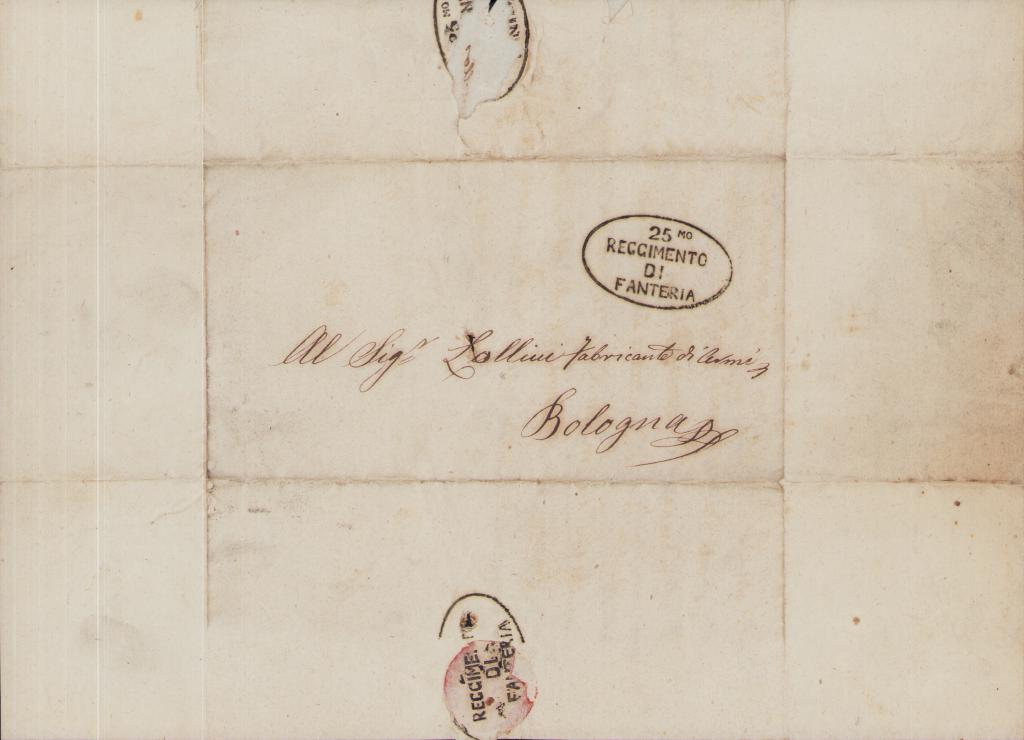 25 MO
REGGIMENTO
DI
FANTERIA
Al Sigr Zollini fabricante di Armi
Bologna
REGGIME
DI
FANTERIA